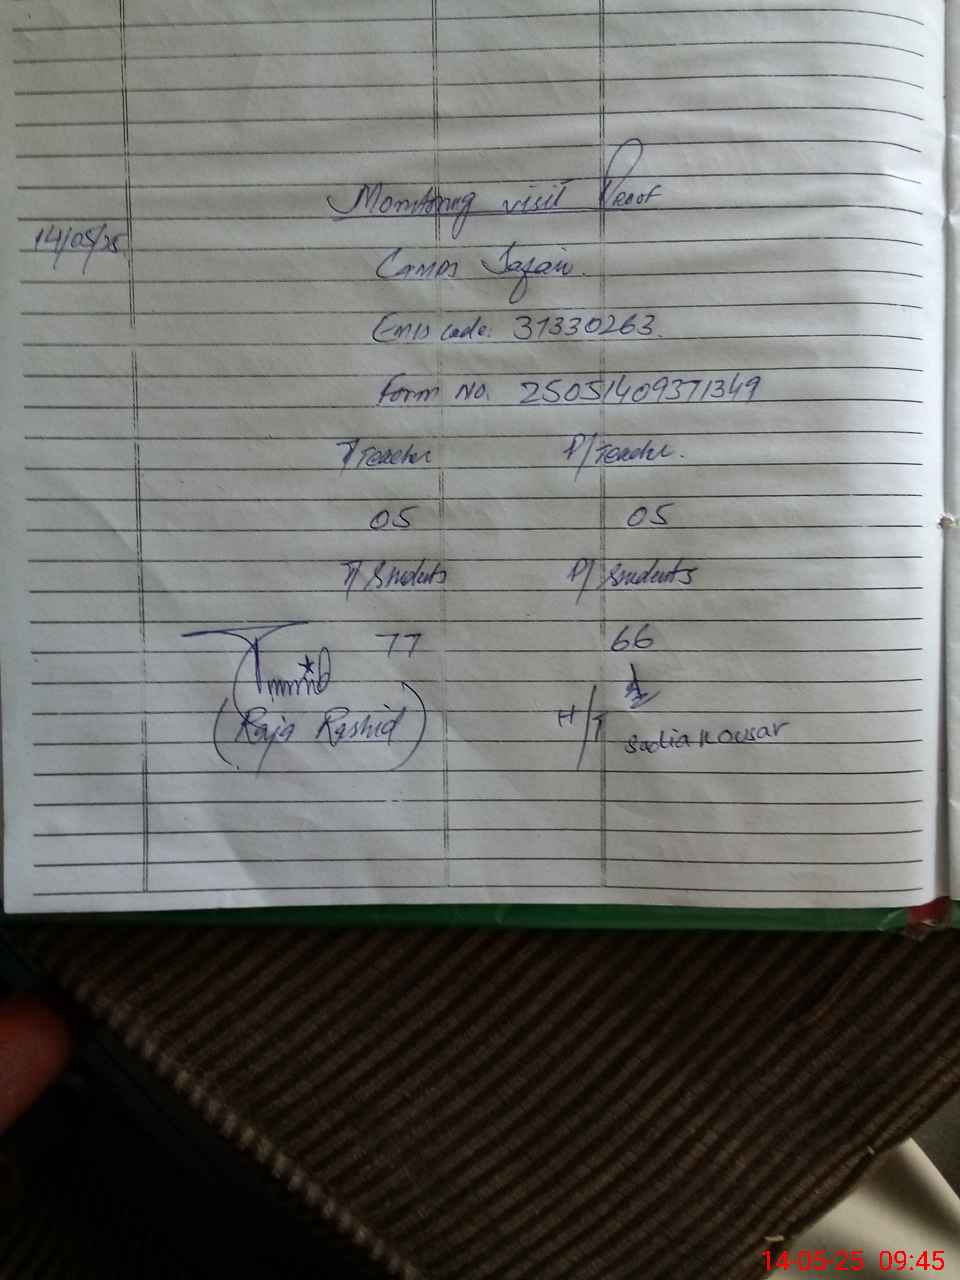 Monitoring visit Proof
14/05/25
GMPS Jafair.
Emis code: 31330263.
Form No. 25051409371349
T/Teacher P/Teacher.
05 05
T/Students P/Students
77 66
(Raja Rashid)
H/T Sadia Kousar
14-05-25 09:45